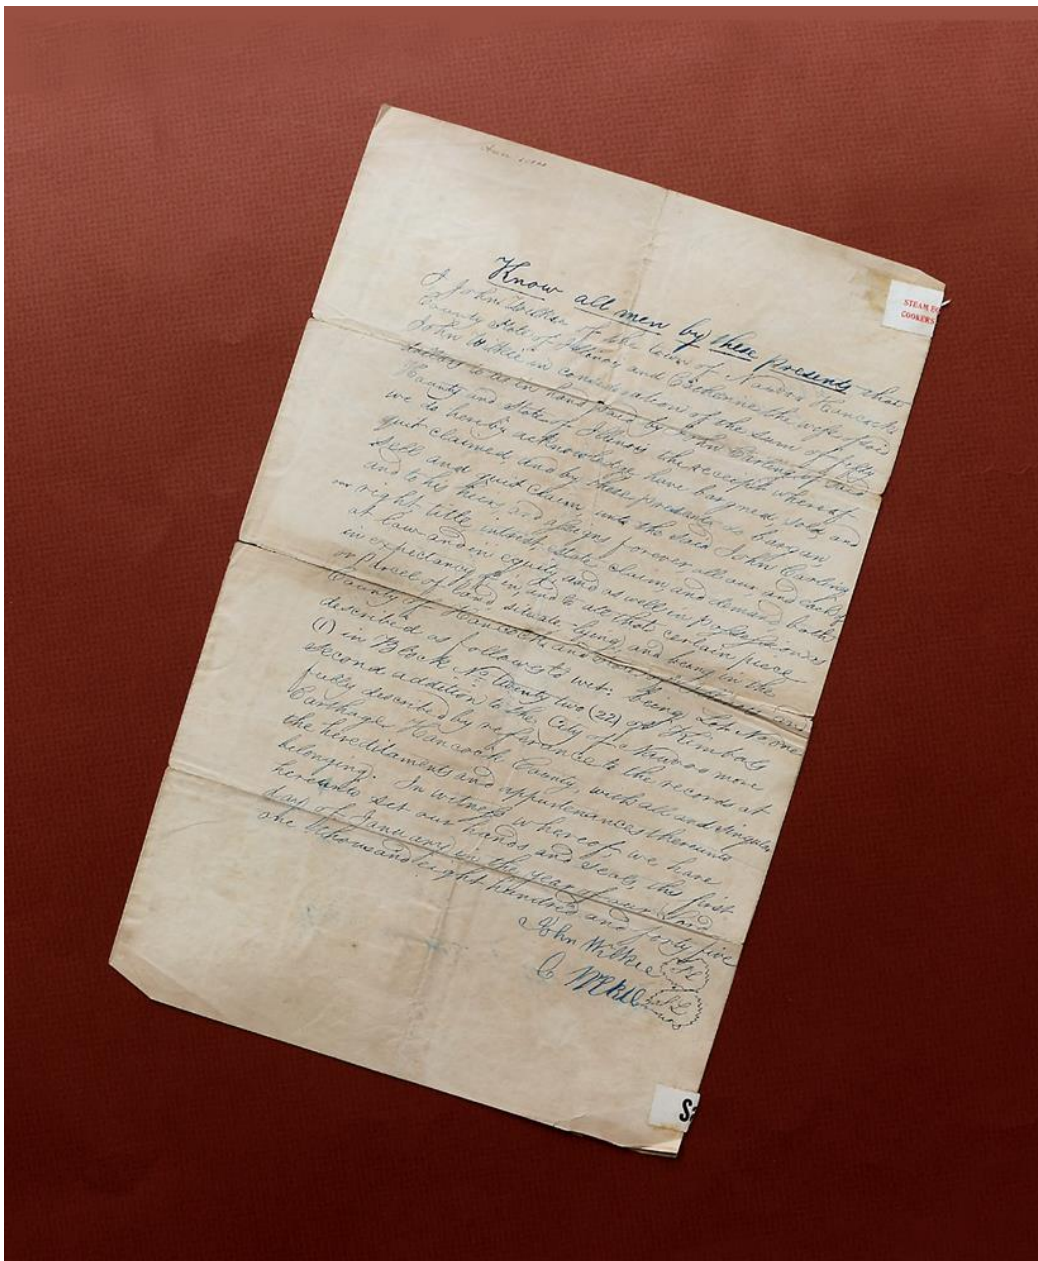 Know all men by these presents that
I John Wilkie of the town of Nauvoo Hancock
County State of Illinois and Catherine the wife of said
John Wilkie in consideration of the sum of fifty
dollars to us in hand paid by John Carling of said
County and State of Illinois the receipt whereof
we do hereby acknowledge have bargined, sold, and
quit claimed, and by these presents do bargain,
sell and quit claim unto the said John Carling
and to his heirs and assigns forever all our and each of
our right, title, intrest, estate, claim, and demand, both
at law and in equity, and as well in possession as
in expectancy of in, and to all that certain piece
or parcel of land situate lying, and being in the
County of Hancock and
described as follows to wit: Being Lot No one
(1) in Block No twenty two (22) of Kimbals
second addition to the City of Nauvoo more
fully described by referance to the records at
Carthage Hancock County, with all and singular
the hereditaments and appurtenances thereunto
belonging. In witness whereof, we have
hereunto set our hands and seals, this first
day of January in the year of our Lord
one thousand eight hundred and forty five
John Wilkie
C
STEAM
COOKERS